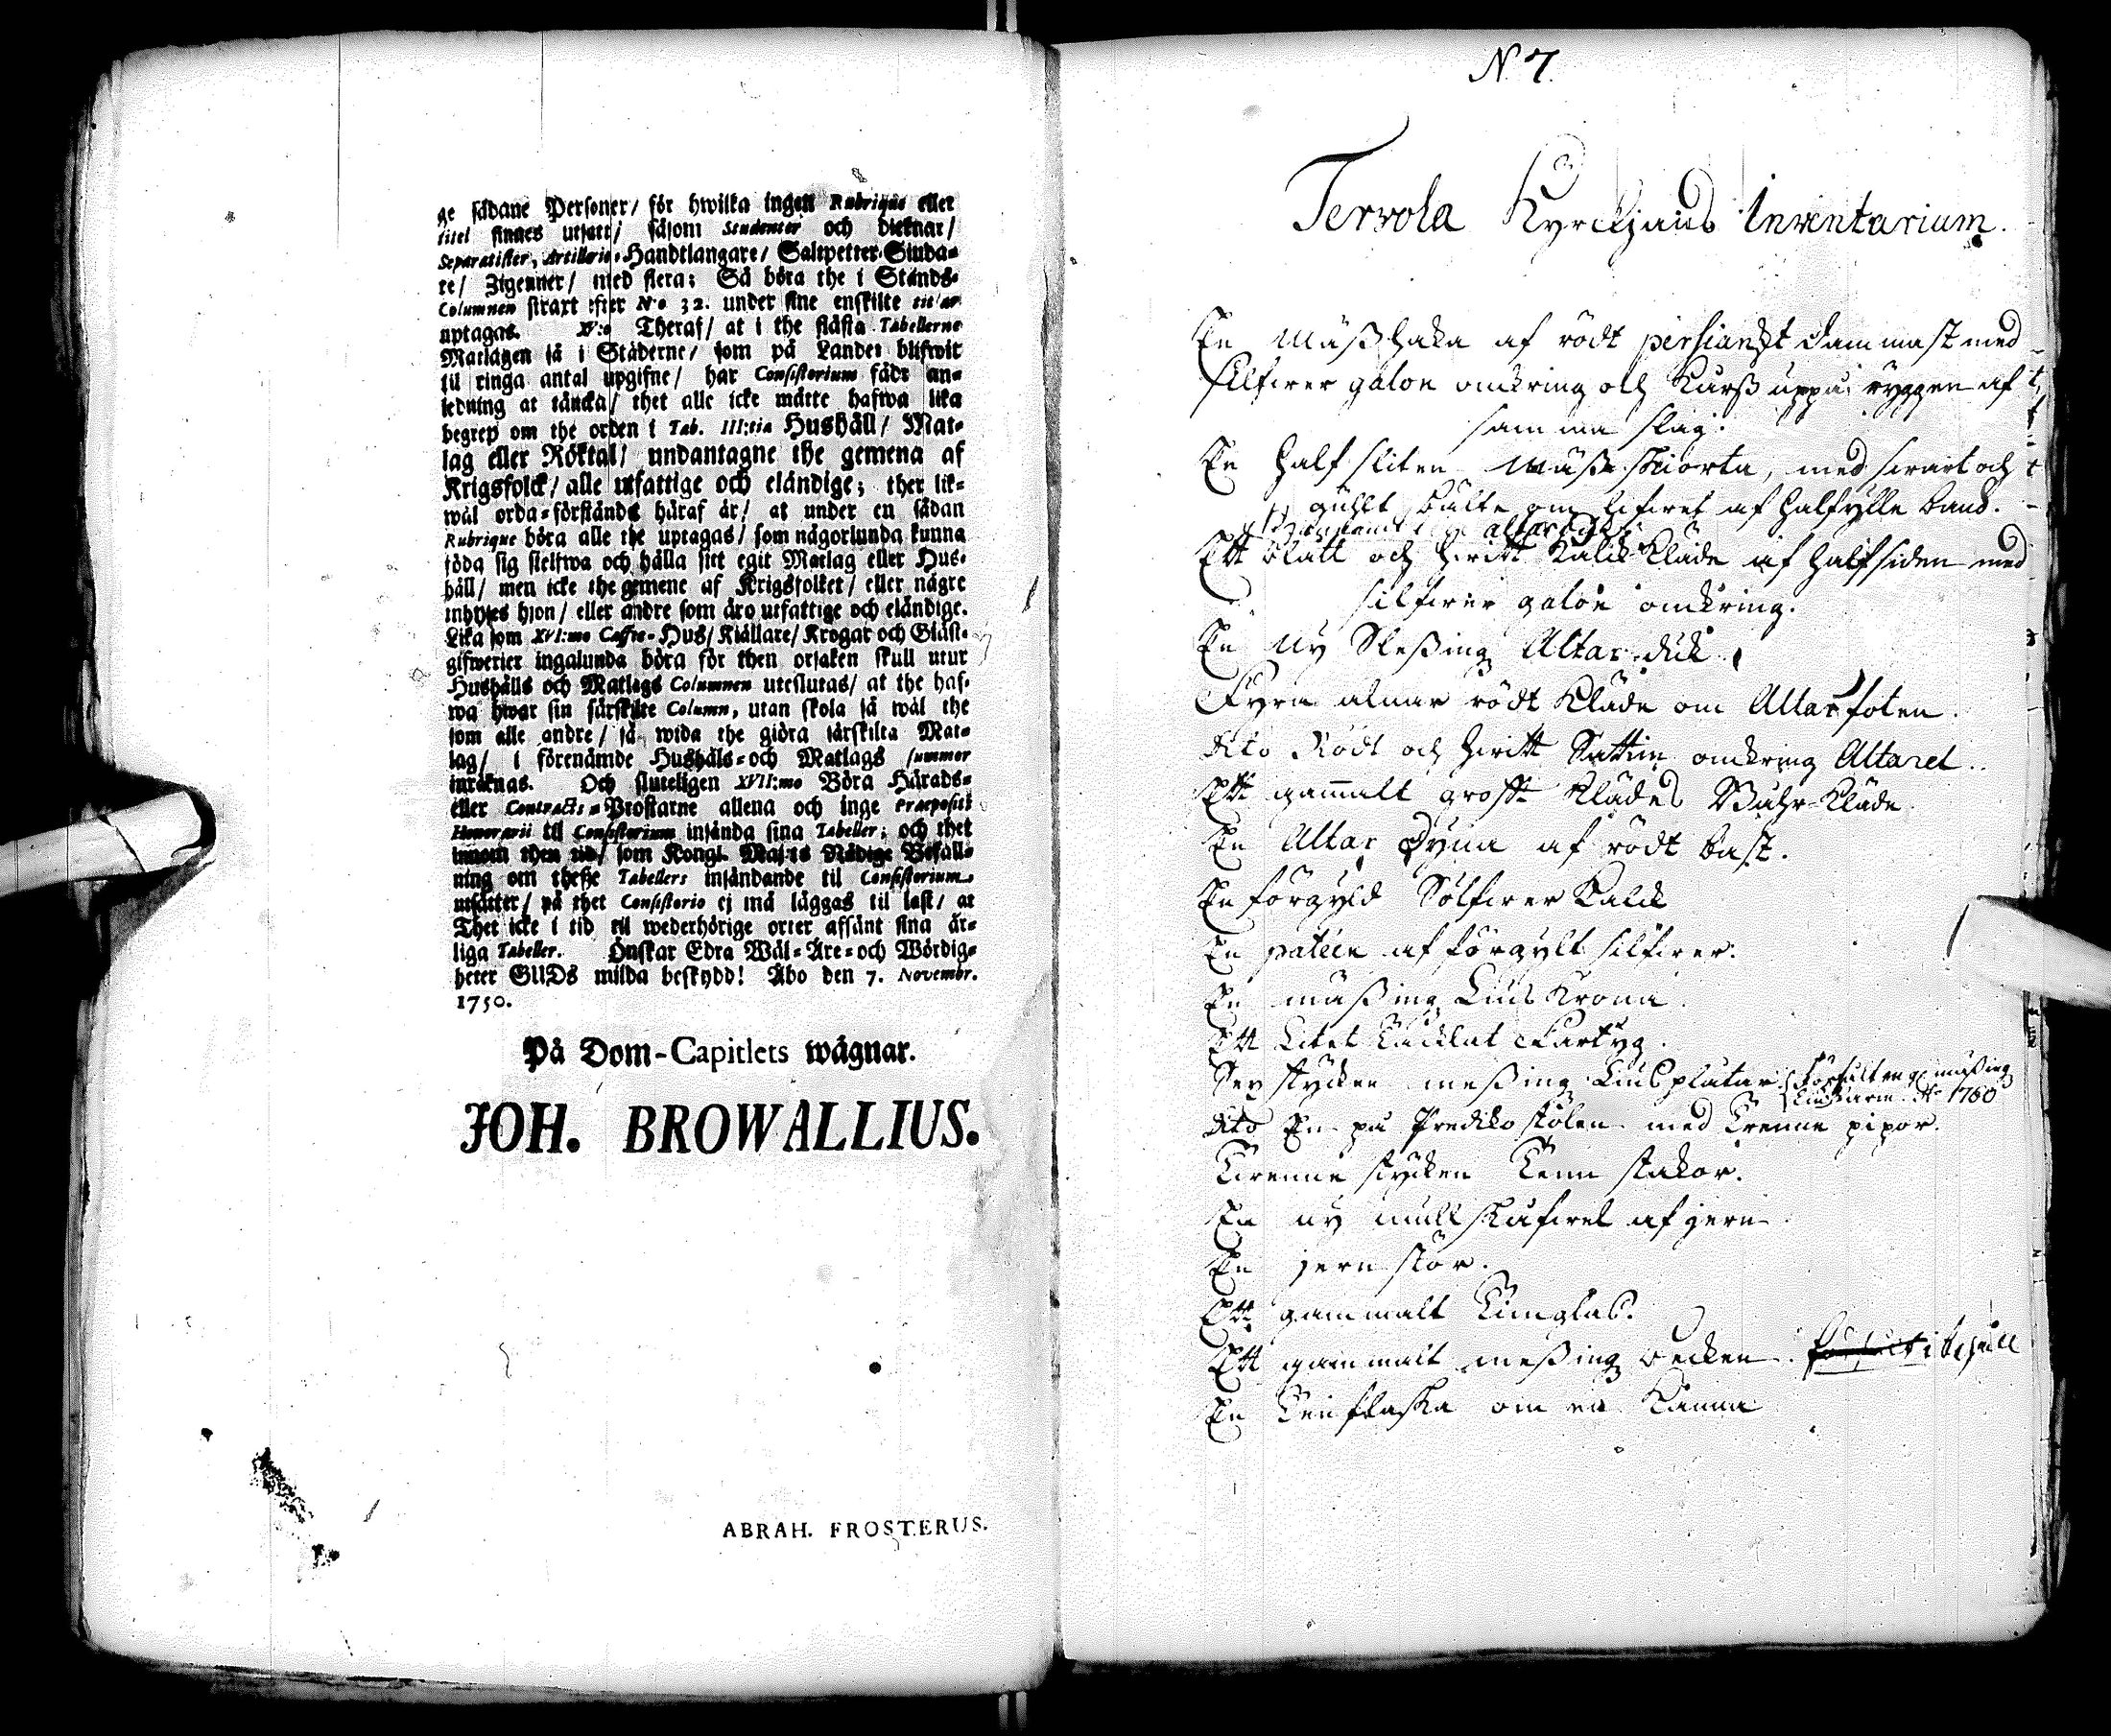 ge sådane Personer/ för hwilka ingen Rubrique eller
titel finnes utsatt/ såsom Studenter och dieknar/
Separatister, Artillerie-Handtlangare/ Saltpetter-Siuda-
re/ Zigenner/ med flera: Så böra the i Stånds-
Columnen strart efter N:o 32. under sine enskilte titlar
uptagas. XV:o Theraf/ at i the flästa Tabellerne
Matlagen så i Städerne/ som på Landet blifwit
til ringa antal upgifne/ har Consistorium fådt an-
ledning at täncka/ thet alle icke mätte hafwa lika
begrep om the orden i Tab. III:tia Hushåll/ Mat-
lag eller Röktal/ undantagne the gemena af
Krigsfolck/ alle utfattige och eländige; ther lik-
wäl orda-förstånds häraf är/ at under en sådan
Rubrique böra alle the uptagas/ som någorlunda kunna
föda sig sielfwa och hålla sitt egit Matlag eller Hus-
håll/ men icke the gemene af Krigsfolket/ eller någre
inhyses hjon/ eller andre som äro utfattige och eländige.
Lika som XVI:mo Caffee-Hus/ Kiällare/ Krogar och Giäst-
gifwerier ingalunda böra för then orsaken skull utur
Hushålls och Matlags Columnen uteslutas/ at the haf-
wa hwar sin särskilte Column, utan skola så wäl the
som alle andre/ så wida the giöra särskilta Mat-
lag/ i förenämde Hushåls-och Matlags summor
inräknas. Och sluteligen XVII:mo Böra Härads-
eller Contracts-Prostarne allena och inge Præpositi
Honorarii til Consistorium insända sina Tabeller; och thet
innom then tid/ som Kongl. Maj:ts Nådige Befall-
ning om thesse Tabellers insändande til Consistorium
utsätter/ på thet Consistorio ej må läggas til last/ at
Thet icke i tid til wederbörige orter afsänt sina år-
liga Tabeller. Önskar Edra Wäl-Äre-och Wördig-
heter GUDs milda beskydd! Åbo den 7. Novembr.
1750.
På Dom-Capitlets wägnar.
JOH. BROWALLIUS.
ABRAH. FROSTERUS.
N 7.
Tervola Kyrckjans Inventarium.
En Mässhaka af rödt persianskt dammast med
silfwer galon omkring och Kurss uppå ryggen af
samma slag.
En half sliten Mässskiorta, med swart och
guhlt bälte om lifwet af halfylle band.
altar
Ett blått och hwitt Kalk Kläde af halfsiden med
silfwer galon omkring.
En Ny Slessing Altar duk
Fyra alnar rödt Kläde om Altarfoten.
dito Rödt och hwitt Sattin omkring Altaret.
Ett gammalt groft Klädes Bahr-Kläde
En Altar Dyna af rödt bast.
En förgyld Sölfwer Kalk
En patéen af förgylt silfwer.
En mässing Lius Krona.
Ett Litet Fartyg.
Sex stycken messing Liusplåtar mässing
Liusarm A:o 1760
dito En på Predikostolen med Trenne pipor.
Twenne stycken Tenn stakor.
En ny mullskofwel af jern
En jern stör.
Ett gammalt Timglas.
Ett gammalt messing becken.
En Tenflaska om en Kanna